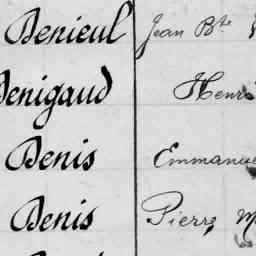 Denieul Jean Bte
Denigaud Henri
Denis Emmanuel
Denis Pierre M